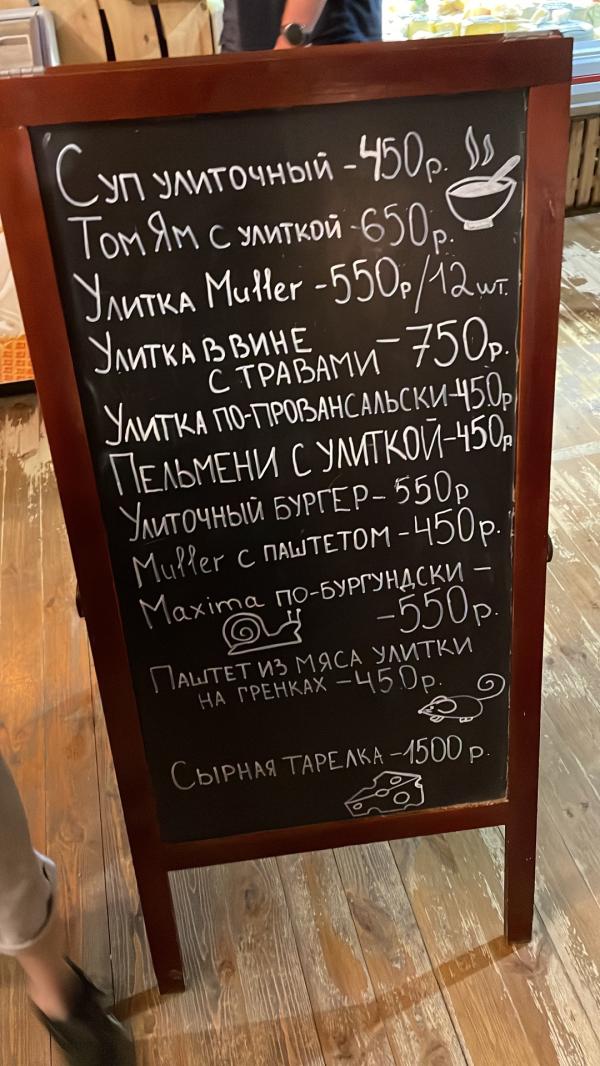 Суп улиточный - 450р.
Том Ям с улиткой - 650р.
Улитка Muller - 550р/12шт.
Улитка в вине - 750р.
с травами
Улитка по-провансальски - 450р
Пельмени с улиткой - 450р
Улиточный бургер - 550р
Muller с паштетом - 450р.
Maxima по-бургундски -
- 550р.
Паштет из мяса улитки
на гренках - 450р.
Сырная тарелка - 1500р.